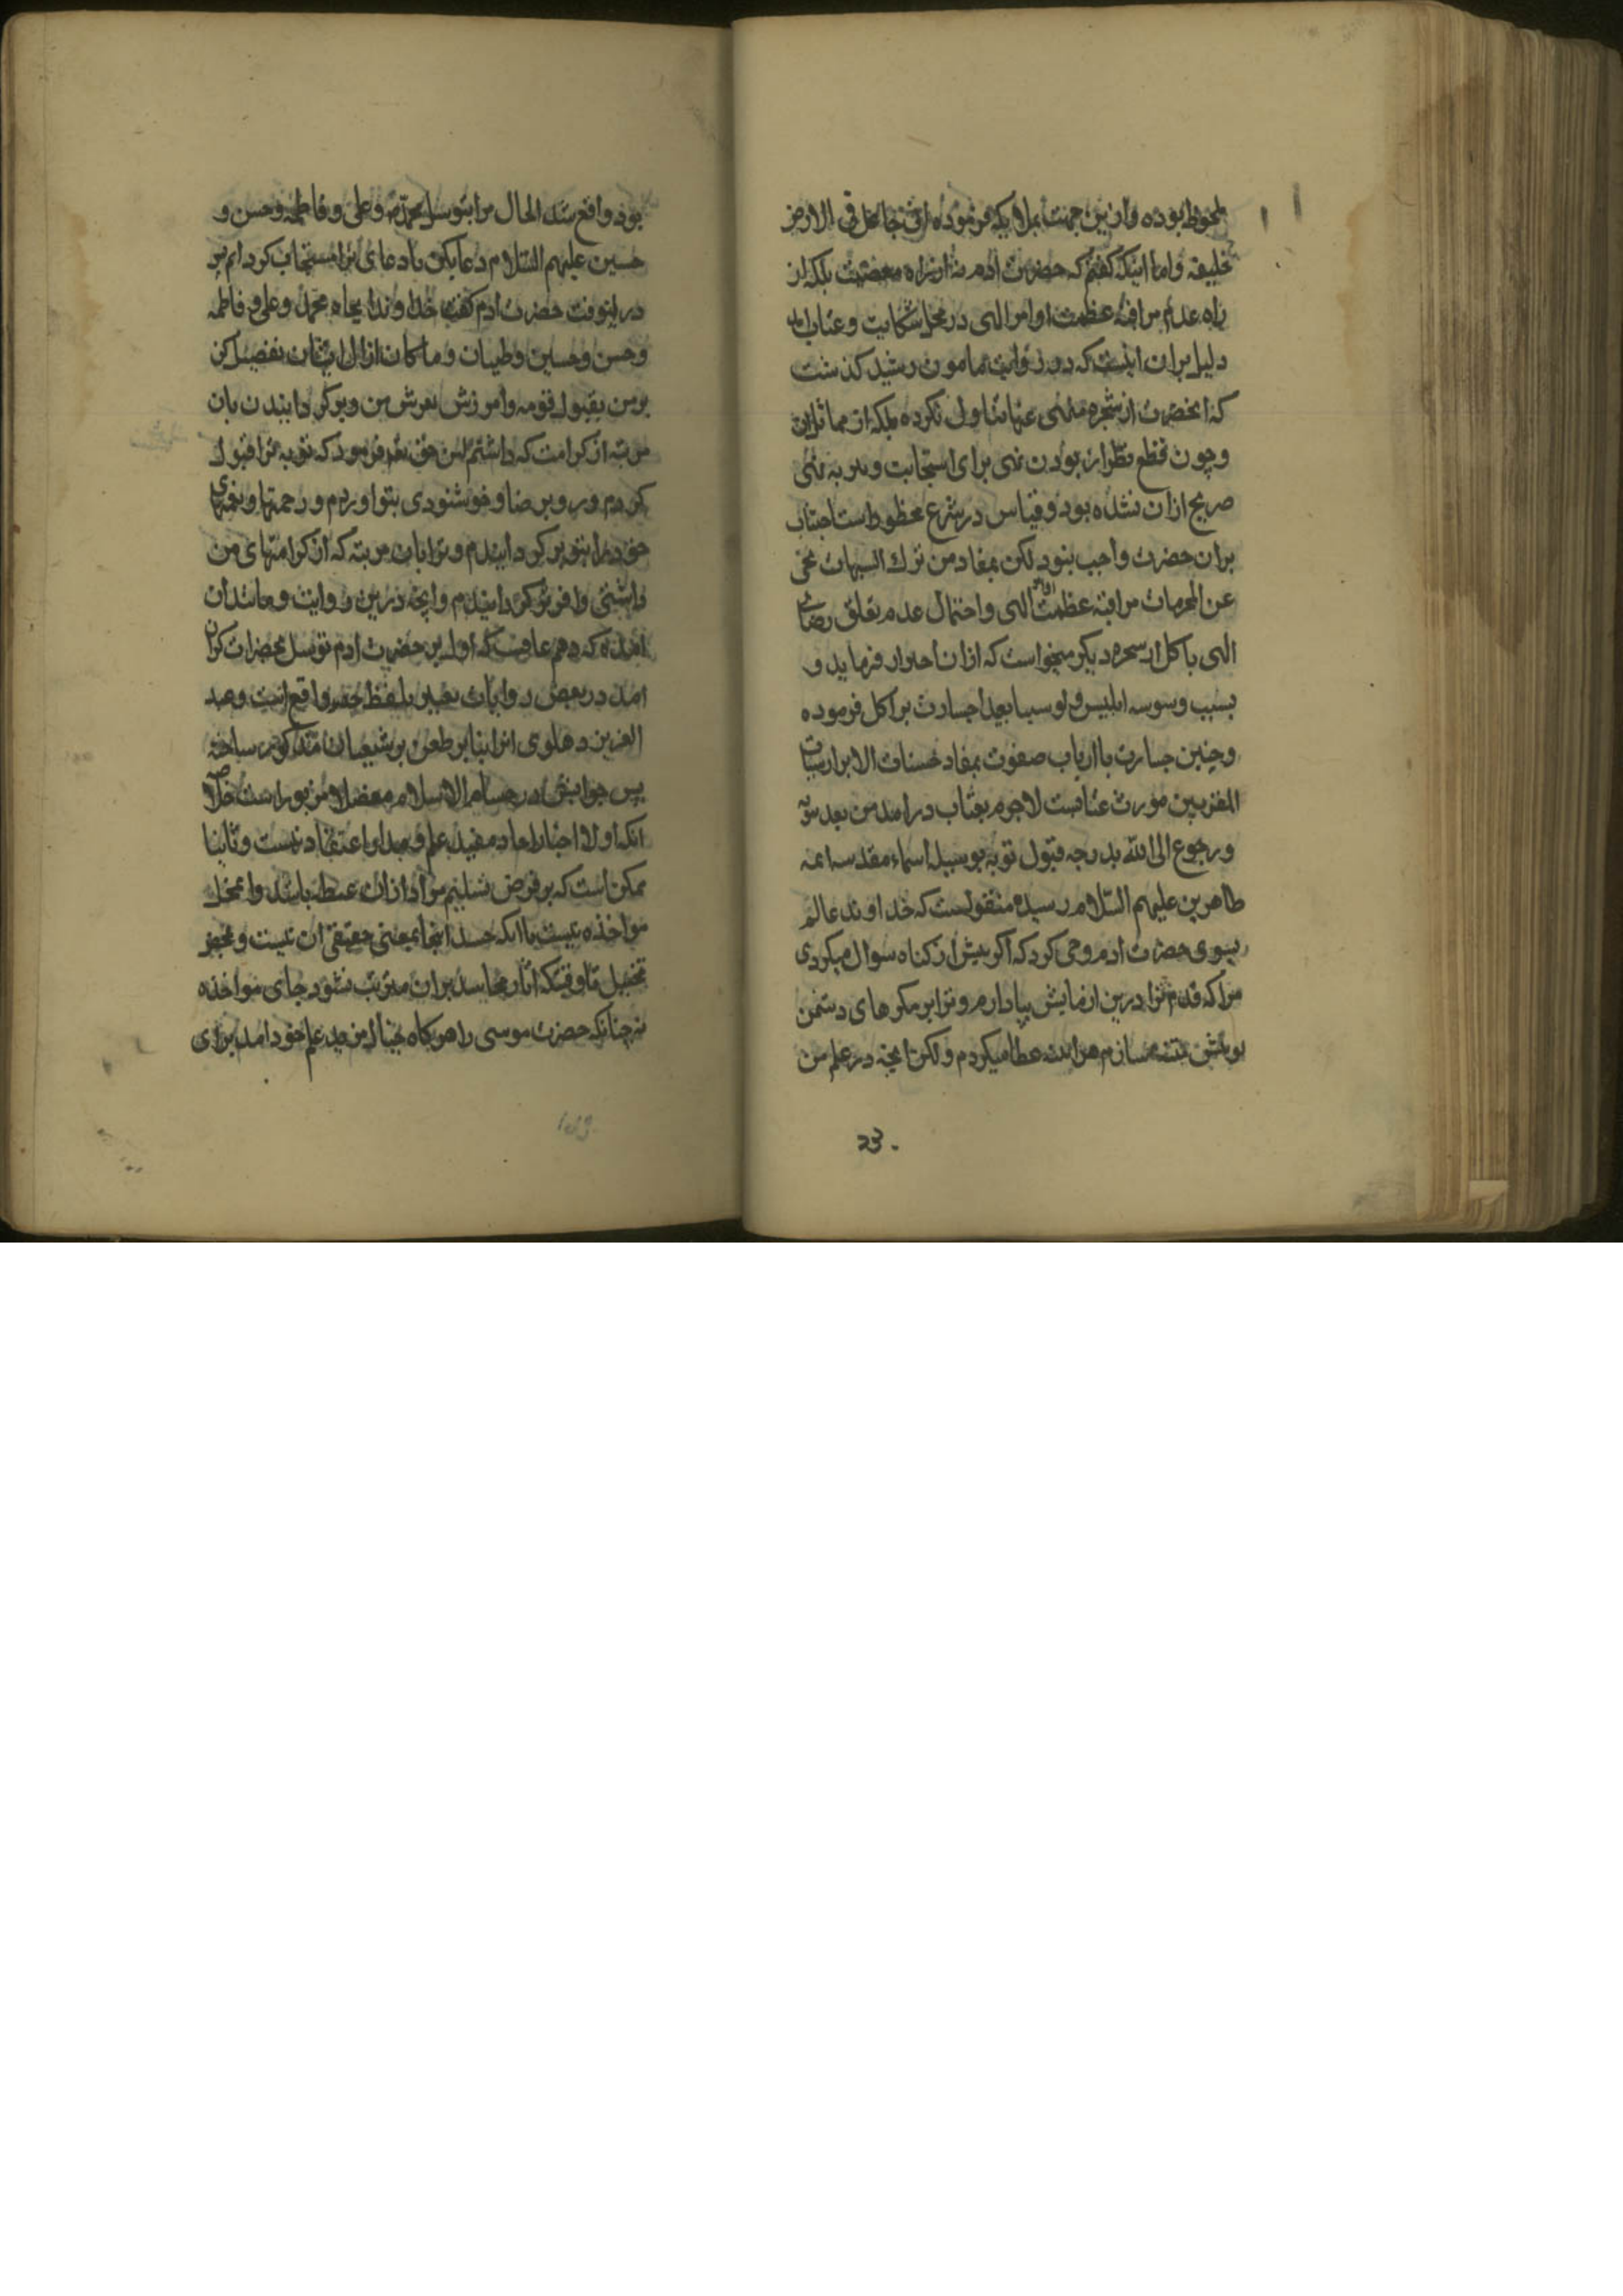 ملحوظ بوده وازین جهت بملایکه فرموده انی جاعل فی الارض
خلیفه واما اینکه گفتم که حضرت ادم نه از راه معصیت بلکه از
راه عدم مراقبه عظمت اوامر الهی در محل شکایت وعتاب امد
دلیل بران اینست که در روایت مامون رشید کذشت
که انحضرت از شجره منهی عنها تناول نکرده بلکه از مماثل ان
وچون قطع نظر از بودن نهی برای استجابت وندبه نهی
صریح ازان نشده بود وقیاس در شرع محظور است اجتناب
بران حضرت واجب نبود لکن بمفاد من ترك الشبهات نجی
عن المحرمات مراقبه عظمت اوامر الهی واحتمال عدم تعلق رضای
الهی باکل از شجره دیکر میخواست که ازان احتراز فرماید و
بسبب وسوسه ابلیس ولو سببا بعیدا جسارت براکل فرموده
وچنین جسارت باارباب صفوت بمفاد حسنات الابرار سیئات
المقربین مورث عتابست لاجرم بعتاب درامد من بعد توبه
ورجوع الی الله بدرجه قبول توبه بوسیله اسماء مقدسه ائمه
طاهرین علیهم السلام رسیده منقولست که خداوند عالم
بسوی حضرت ادم وحی کرد که اکر پیش از کناه سوال میکردی
مرا که قدم ترا درین ازمایش بپا دارم وترا بر مکرهای دشمن
تو متنبه سازم هر اینه عطا میکردم ولکن انچه در علم من
23
بود واقع شد الحال مرا بتوسل محمد وعلی وفاطمه وحسن و
حسین علیهم السلام دعا بکن تا دعای ترا مستجاب کردانم پس
درینوقت حضرت ادم کفت خداوندا بجاه محمد وعلی وفاطمه
وحسن وحسین وطیبان وپاکان از ال ایشان تفضل کن
بر من بقبول توبه وامرزش لغزش من وبر کردانیدن بان
مرتبه از کرامت که داشتم پس حق تعه فرمود که توبه ترا قبول
کردم ورو برضا وخوشنودی بتو اوردم ورحمتها ونعمتهای
خود را بتو بر کردانیدم وترا بان مرتبه که از کرامتهای من
داشتی وافر تو کردانیدم وانچه درین روایت ومانند ان
امده که دهم عاقبت که اولین حضرت ادم توسل بحضرات کرام
امد در بعض روایات تعبیر بلفظ حسد واقع است وعبد
العزیز دهلوی انرا بنابر طعن بر شیعیان متذکور ساخته
پس جوابش در حسام الاسلام مفصلا مزبور است خلاصه
انکه اولا اخبار احاد مفید علم ومدار اعتقاد نیست وثانیا
ممکن است که بر فرض تسلیم مراد ازان غبطه باشد وان محل
مواخذه نیست یا انکه حسد اینجا بمعنی حقیقی ان نیست ومجرد
تخیل تا وقتیکه اثار تحاسد بران مترتب نشود جای مواخذه
نه چنانکه حضرت موسی را هرکاه خیال مزید علم خود امد برای